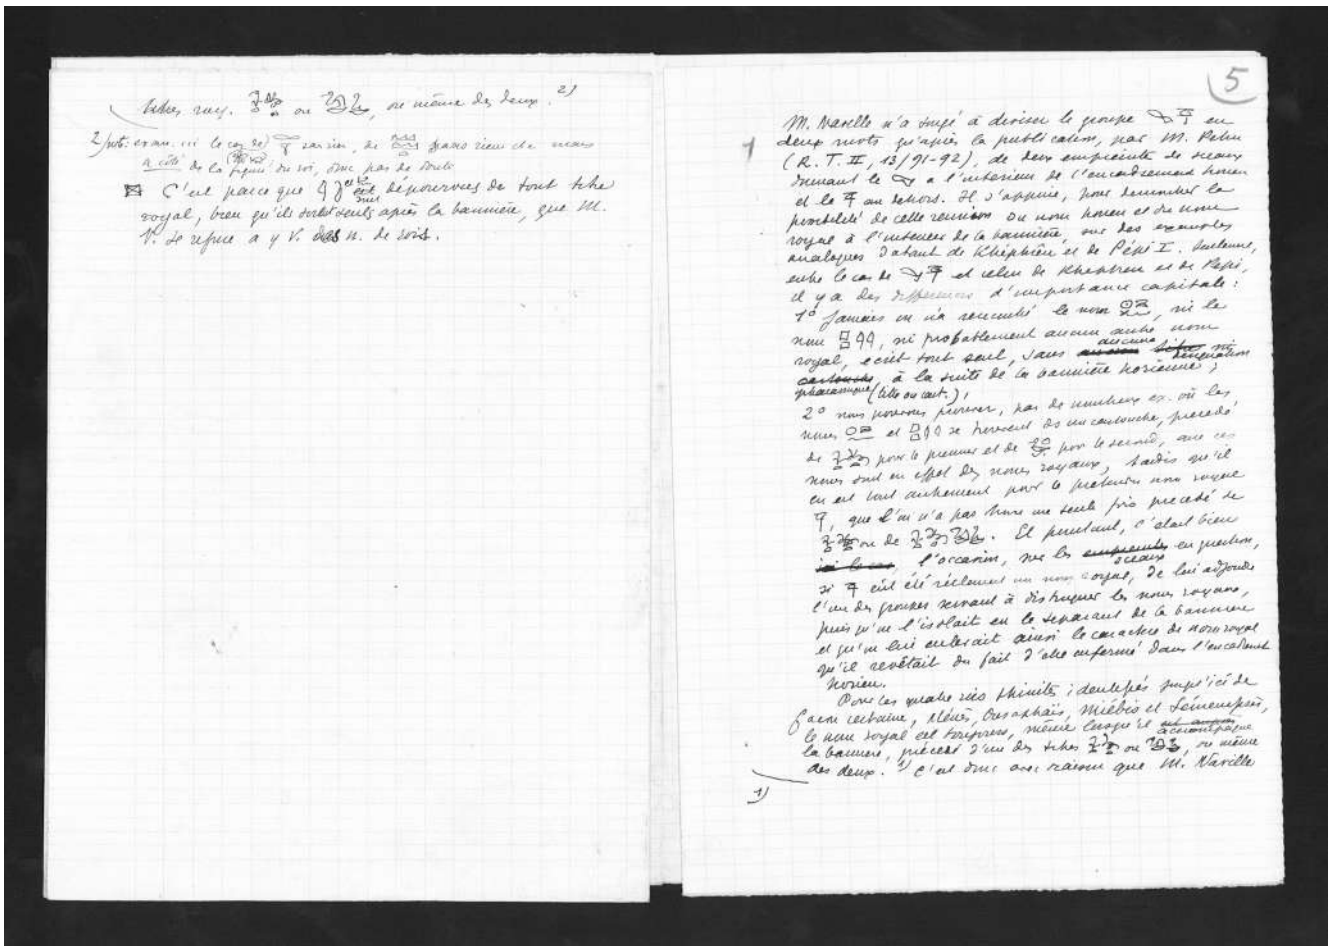 titres roy. ou , ou même des deux. 2)
2) note: exam. ici le cas de
à côté de la figure du roi, donc pas de doute
C'est parce que dépourvus de tout titre
royal, bien qu'ils soient seuls après la bannière, que M.
N. se refuse à y V. des n. de rois.
5
M. Naville n'a songé à diviser le groupe en
deux mots qu'après la publication, par M. Petrie
(R. T. II, 13/91-92), de deux empreintes de sceaux
donnant le à l'intérieur de l'encadrement horien
et le au dehors. Il s'appuie, pour démontrer la
possibilité de cette réunion du nom horien et du nom
royal à l'intérieur de la bannière, sur des exemples
analogues datant de Khéphren et de Pépi I. Seulement,
entre le cas de et celui de Khéphren et de Pepi,
il y a des différences d'importance capitale :
1º Jamais on n'a rencontré le nom , ni le
nom , ni probablement aucun autre nom
royal, écrit tout seul, sans aucune désignation
pharaonique (titre ou cart.), à la suite de la bannière horienne ;
2º nous pouvons prouver, par de nombreux ex. où les
noms et se trouvent ds un cartouche, précédé
de pour le premier et de pour le second, que ces
noms sont en effet des noms royaux, tandis qu'il
en est tout autrement pour le prétendu nom royal
, que l'on n'a pas trouvé une seule fois précédé de
ou de . Et pourtant, c'était bien
l'occasion, sur les sceaux en question,
si eût été réellement un nom royal, de lui adjoindre
l'un des groupes servant à distinguer les noms royaux,
puisqu'on l'isolait en le séparant de la bannière
et qu'on lui enlevait ainsi le caractère de nom royal
qu'il revêtait du fait d'être enfermé dans l'encadrement
horien.
Pour les quatre rois thinites identifiés jusqu'ici de
façon certaine, Ménès, Ousaphaïs, Miébis et Sémempsès,
le nom royal est toujours, même lorsqu'il accompagne
la bannière, précédé d'un des titres ou , ou même
des deux. 1) C'est donc avec raison que M. Naville
1)